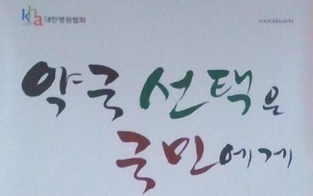 kha 대한병원협회
www.kha.or.kr
약국 선택은
국민에게